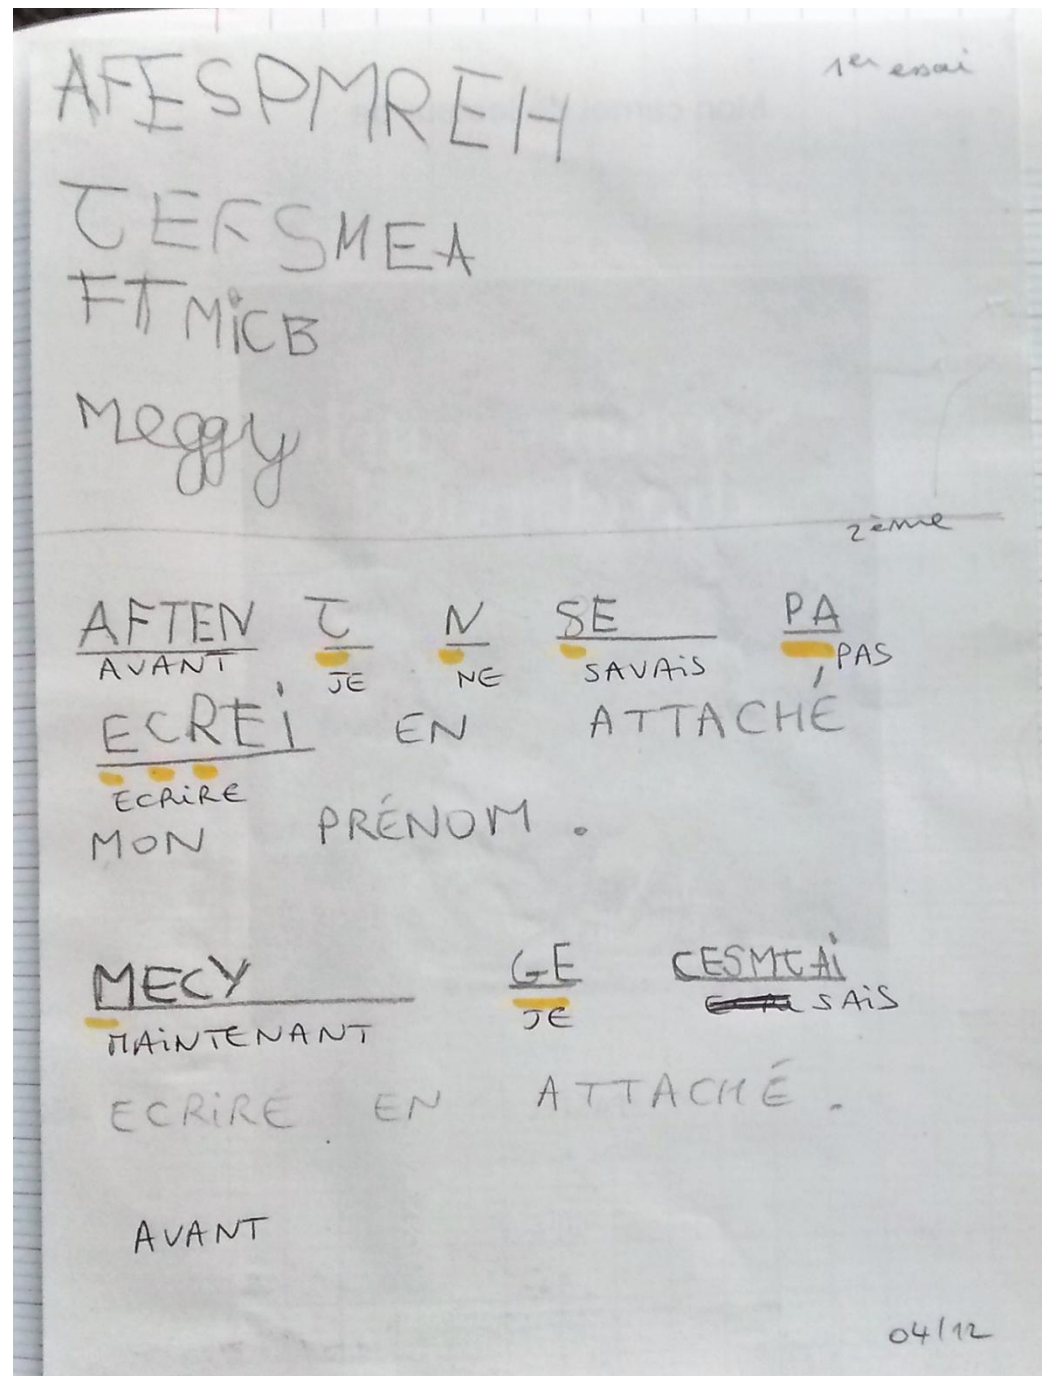 1er essai
AFESPMREH
TEFSMEA
FTMiCB
Meggy
2ème
AFTEN T N SE PA
AVANT JE NE SAVAiS PAS
ECREi EN ATTACHÉ
ECRiRE
MON PRÉNOM.
MECY GE CESMTAi
MAiNTENANT JE SAiS
ECRiRE EN ATTACHÉ.
AVANT
04/12